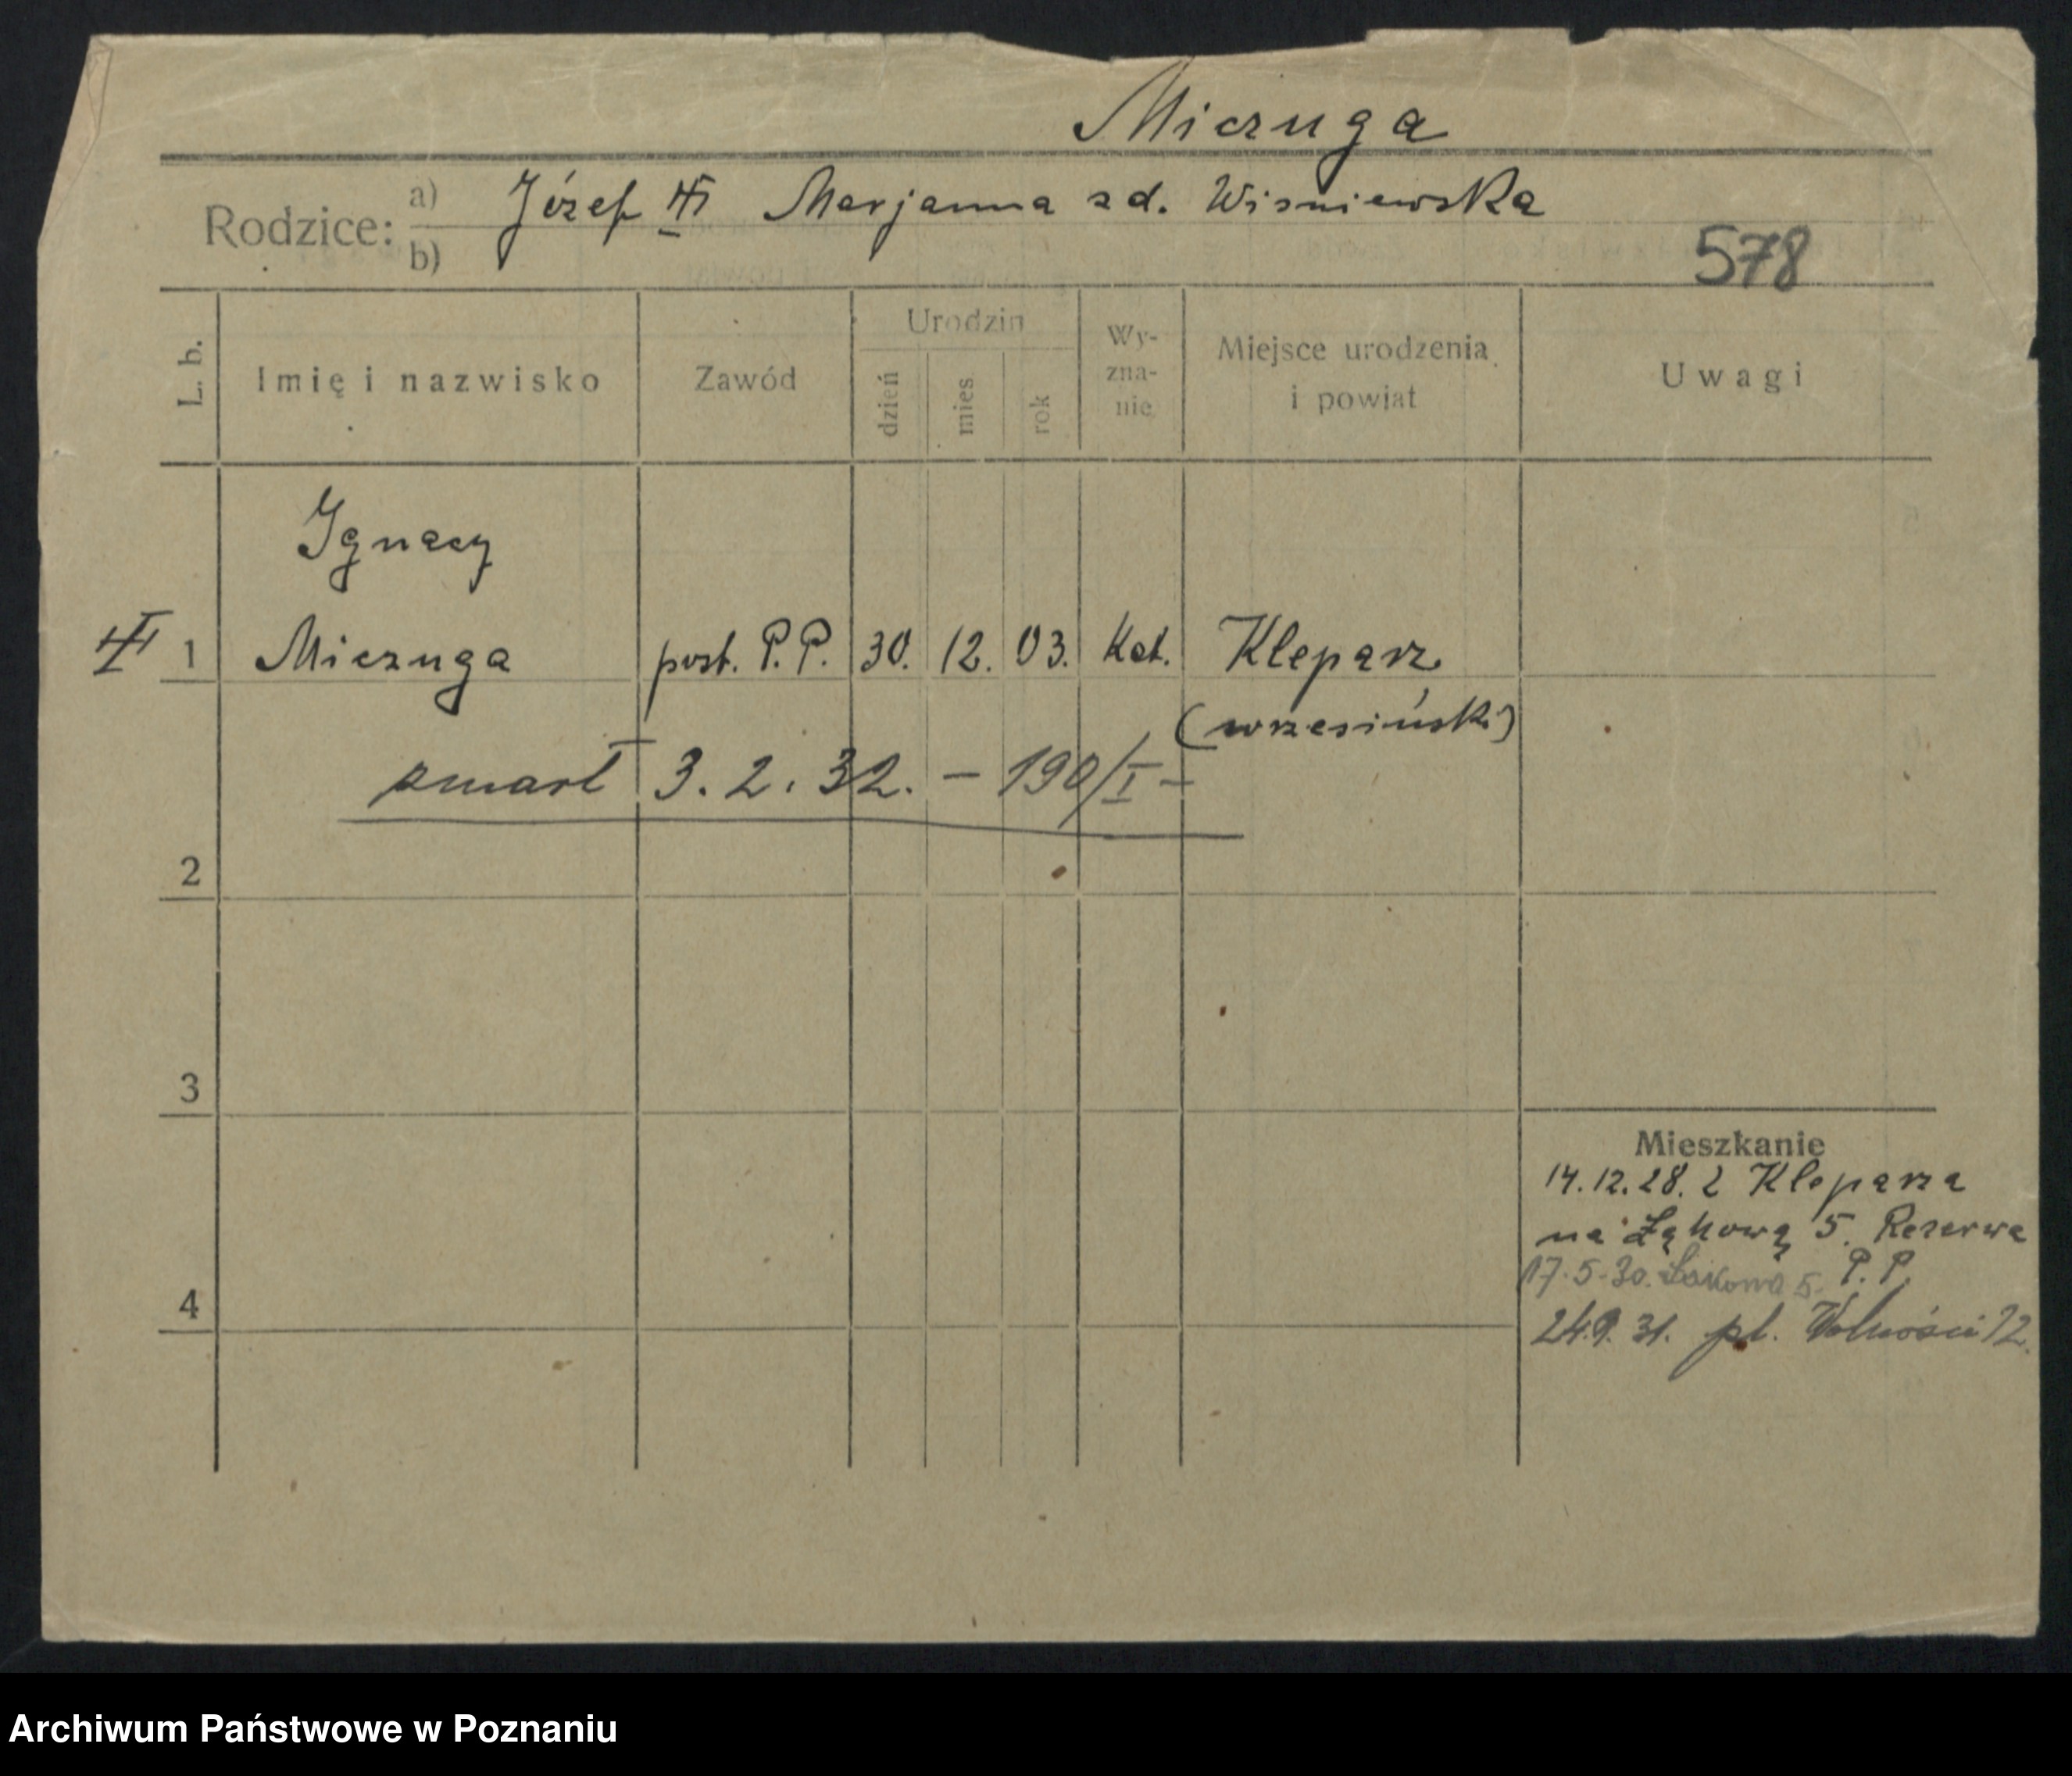 Miczuga
Rodzice: a) Józef Marjanna zd. Wiśniewska
b)
578
L. b.
Imię i nazwisko
Zawód
Urodzin
dzień
mies
rok
Wy-
zna-
nie
Miejsce urodzenia
i powiat
Uwagi
Ignacy
1 Miczuga post. P.P. 30. 12. 03. Kat. Kleparz
(wrzesiński)
zmarł 3. 2. 32. – 190/I –
2
3
4
Mieszkanie
14.12.28. z Kleparza
na Łąkową 5. Rezerwa
P. P.
17.5.30. Łąkowa 5.
24.9.31. pl. Wolności 12.
Archiwum Państwowe w Poznaniu